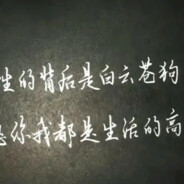 生的背后是白云苍狗
你我都是生活的高